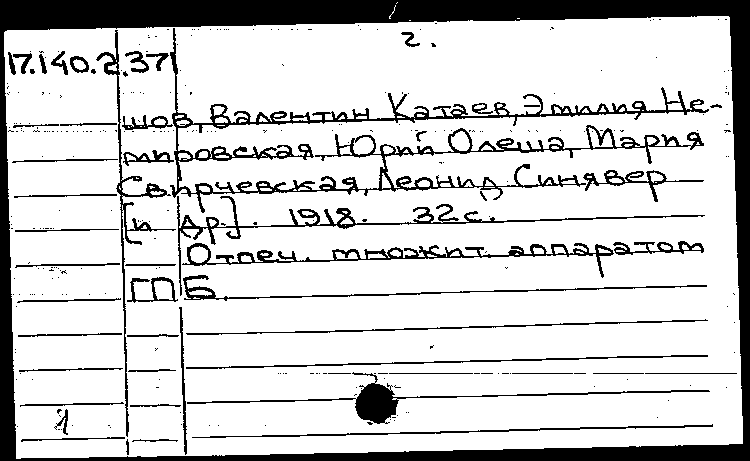 2.
17.140.2.371
шов, Валентин Катаев, Эмилия Не-
мировская, Юрий Олеша, Мария
Свирчевская, Леонид Синявер
[и др.]. 1918. 32 с.
Отпеч. множит. аппаратом
ГПБ.
1